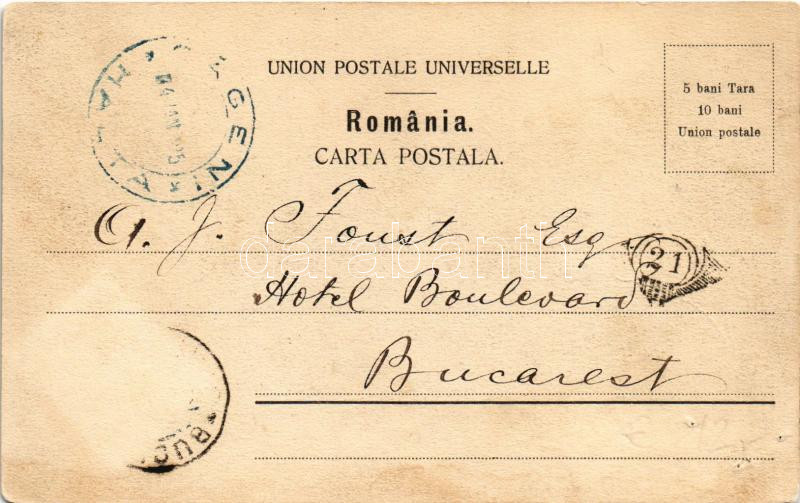 UNION POSTALE UNIVERSELLE
România.
CARTA POSTALA.
5 bani Tara
10 bani
Union postale
HALTA
GENI
A. J. Foust Esq
21
Hotel Boulevard
Bucarest
BUC
darabanth